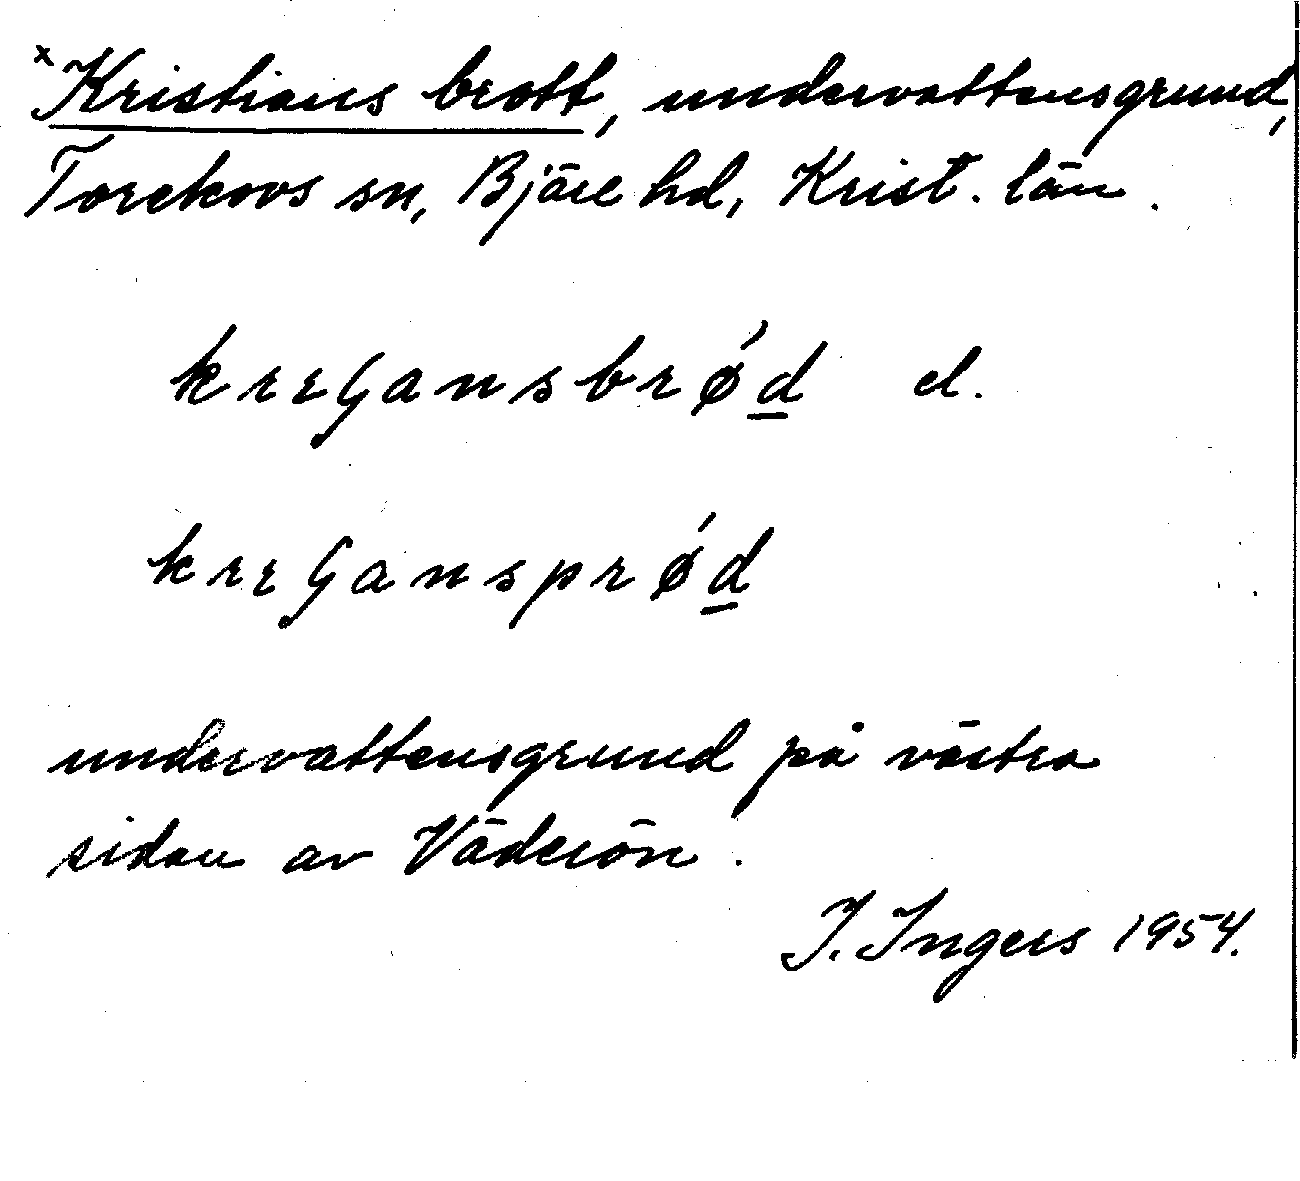 ˣKristians brott, undervattensgrund,
Torekovs sn, Bjäre hd, Krist. län.
krɪʃansbrǿd el.
krɪʃansprǿd
undervattensgrund på västra
sidan av Väderön.
I. Ingers 1954.